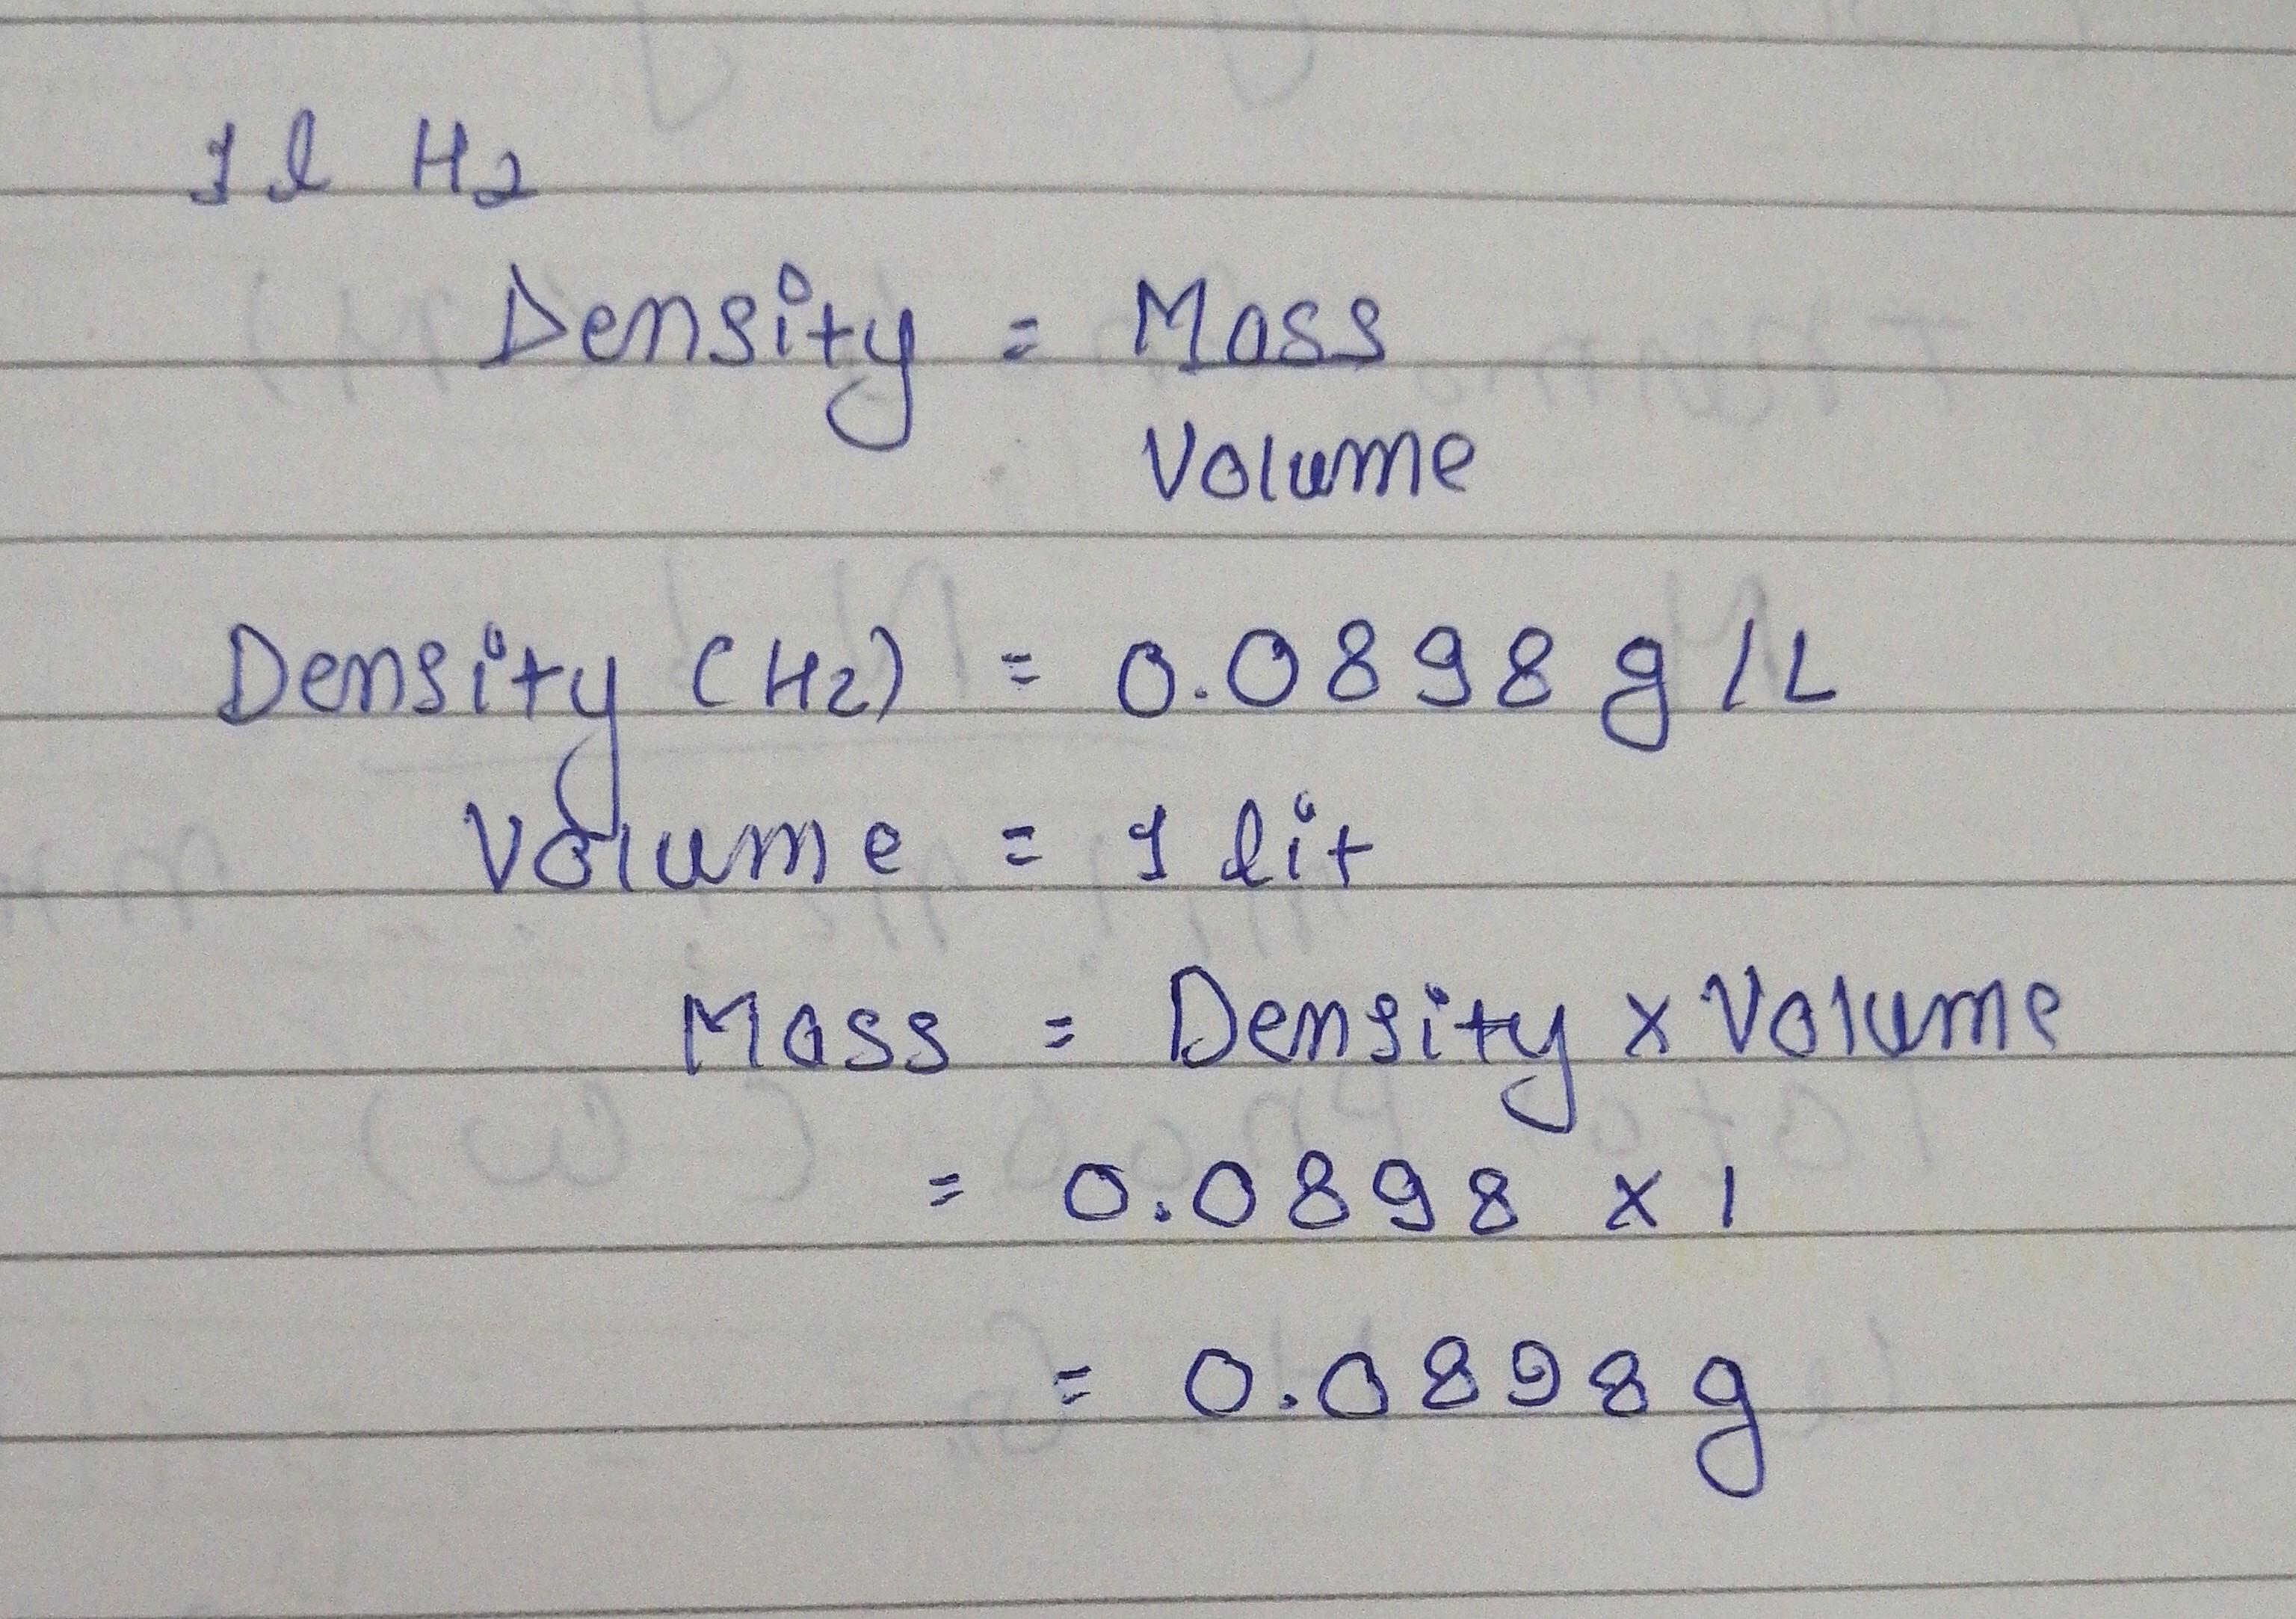 1 l H2
Density = Mass
Volume
Density (H2) = 0.0898 g/L
Volume = 1 lit
Mass = Density x Volume
= 0.0898 x 1
= 0.0898 g